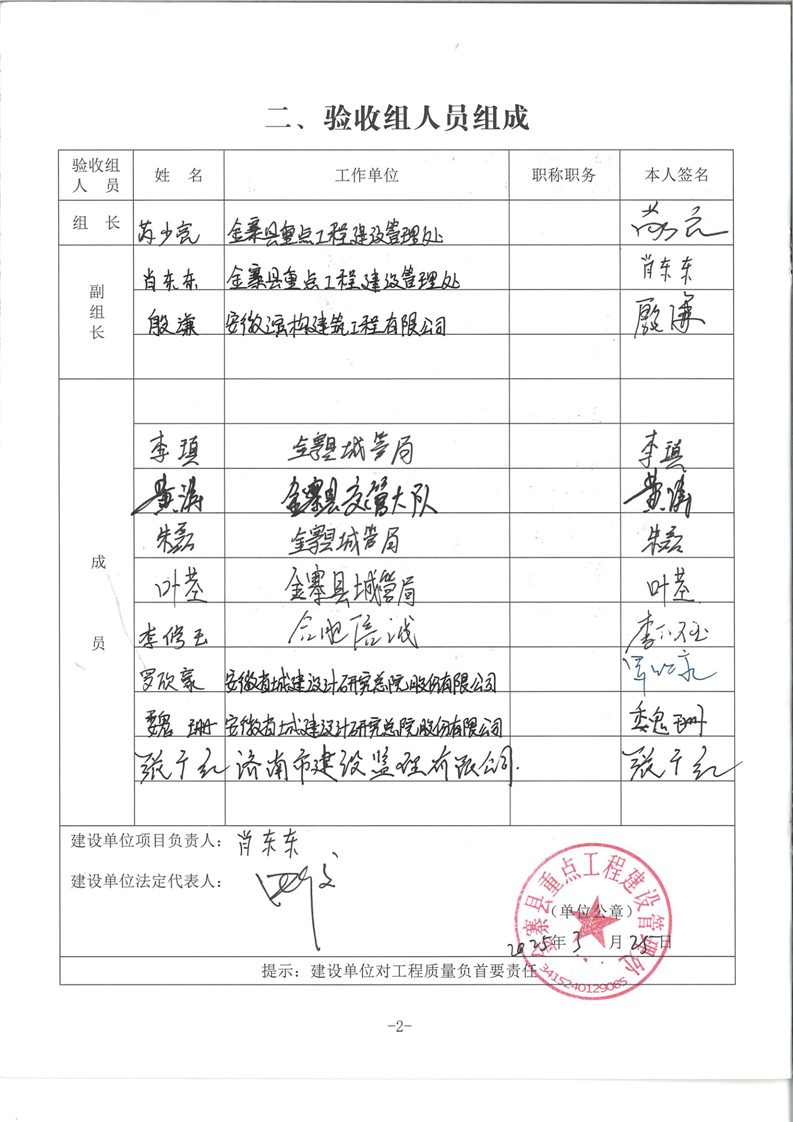 二、验收组人员组成
验收组人员 姓 名 工作单位 职称职务 本人签名
组 长 芮少亮 金寨县重点工程建设管理处
副组长
肖东东 金寨县重点工程建设管理处 肖东东
殷濂 安徽 构建筑工程有限公司 殷濂
成员
李琪 金寨县城管局 李琪
黄涛 金寨县交管大队 黄涛
朱磊 金寨县城管局 朱磊
叶茎 金寨县城管局 叶茎
李修玉 合肥信诚
罗欣豪 安徽省城建设计研究总院股份有限公司
魏珊 安徽省城建设计研究总院股份有限公司 魏珊
张广红 济南市建设监理有限公司. 张广红
建设单位项目负责人: 肖东东
建设单位法定代表人:
金寨县重点工程建设管理处
(单位公章)
2025年3月25日
3415240129085
提示:建设单位对工程质量负首要责任
-2-